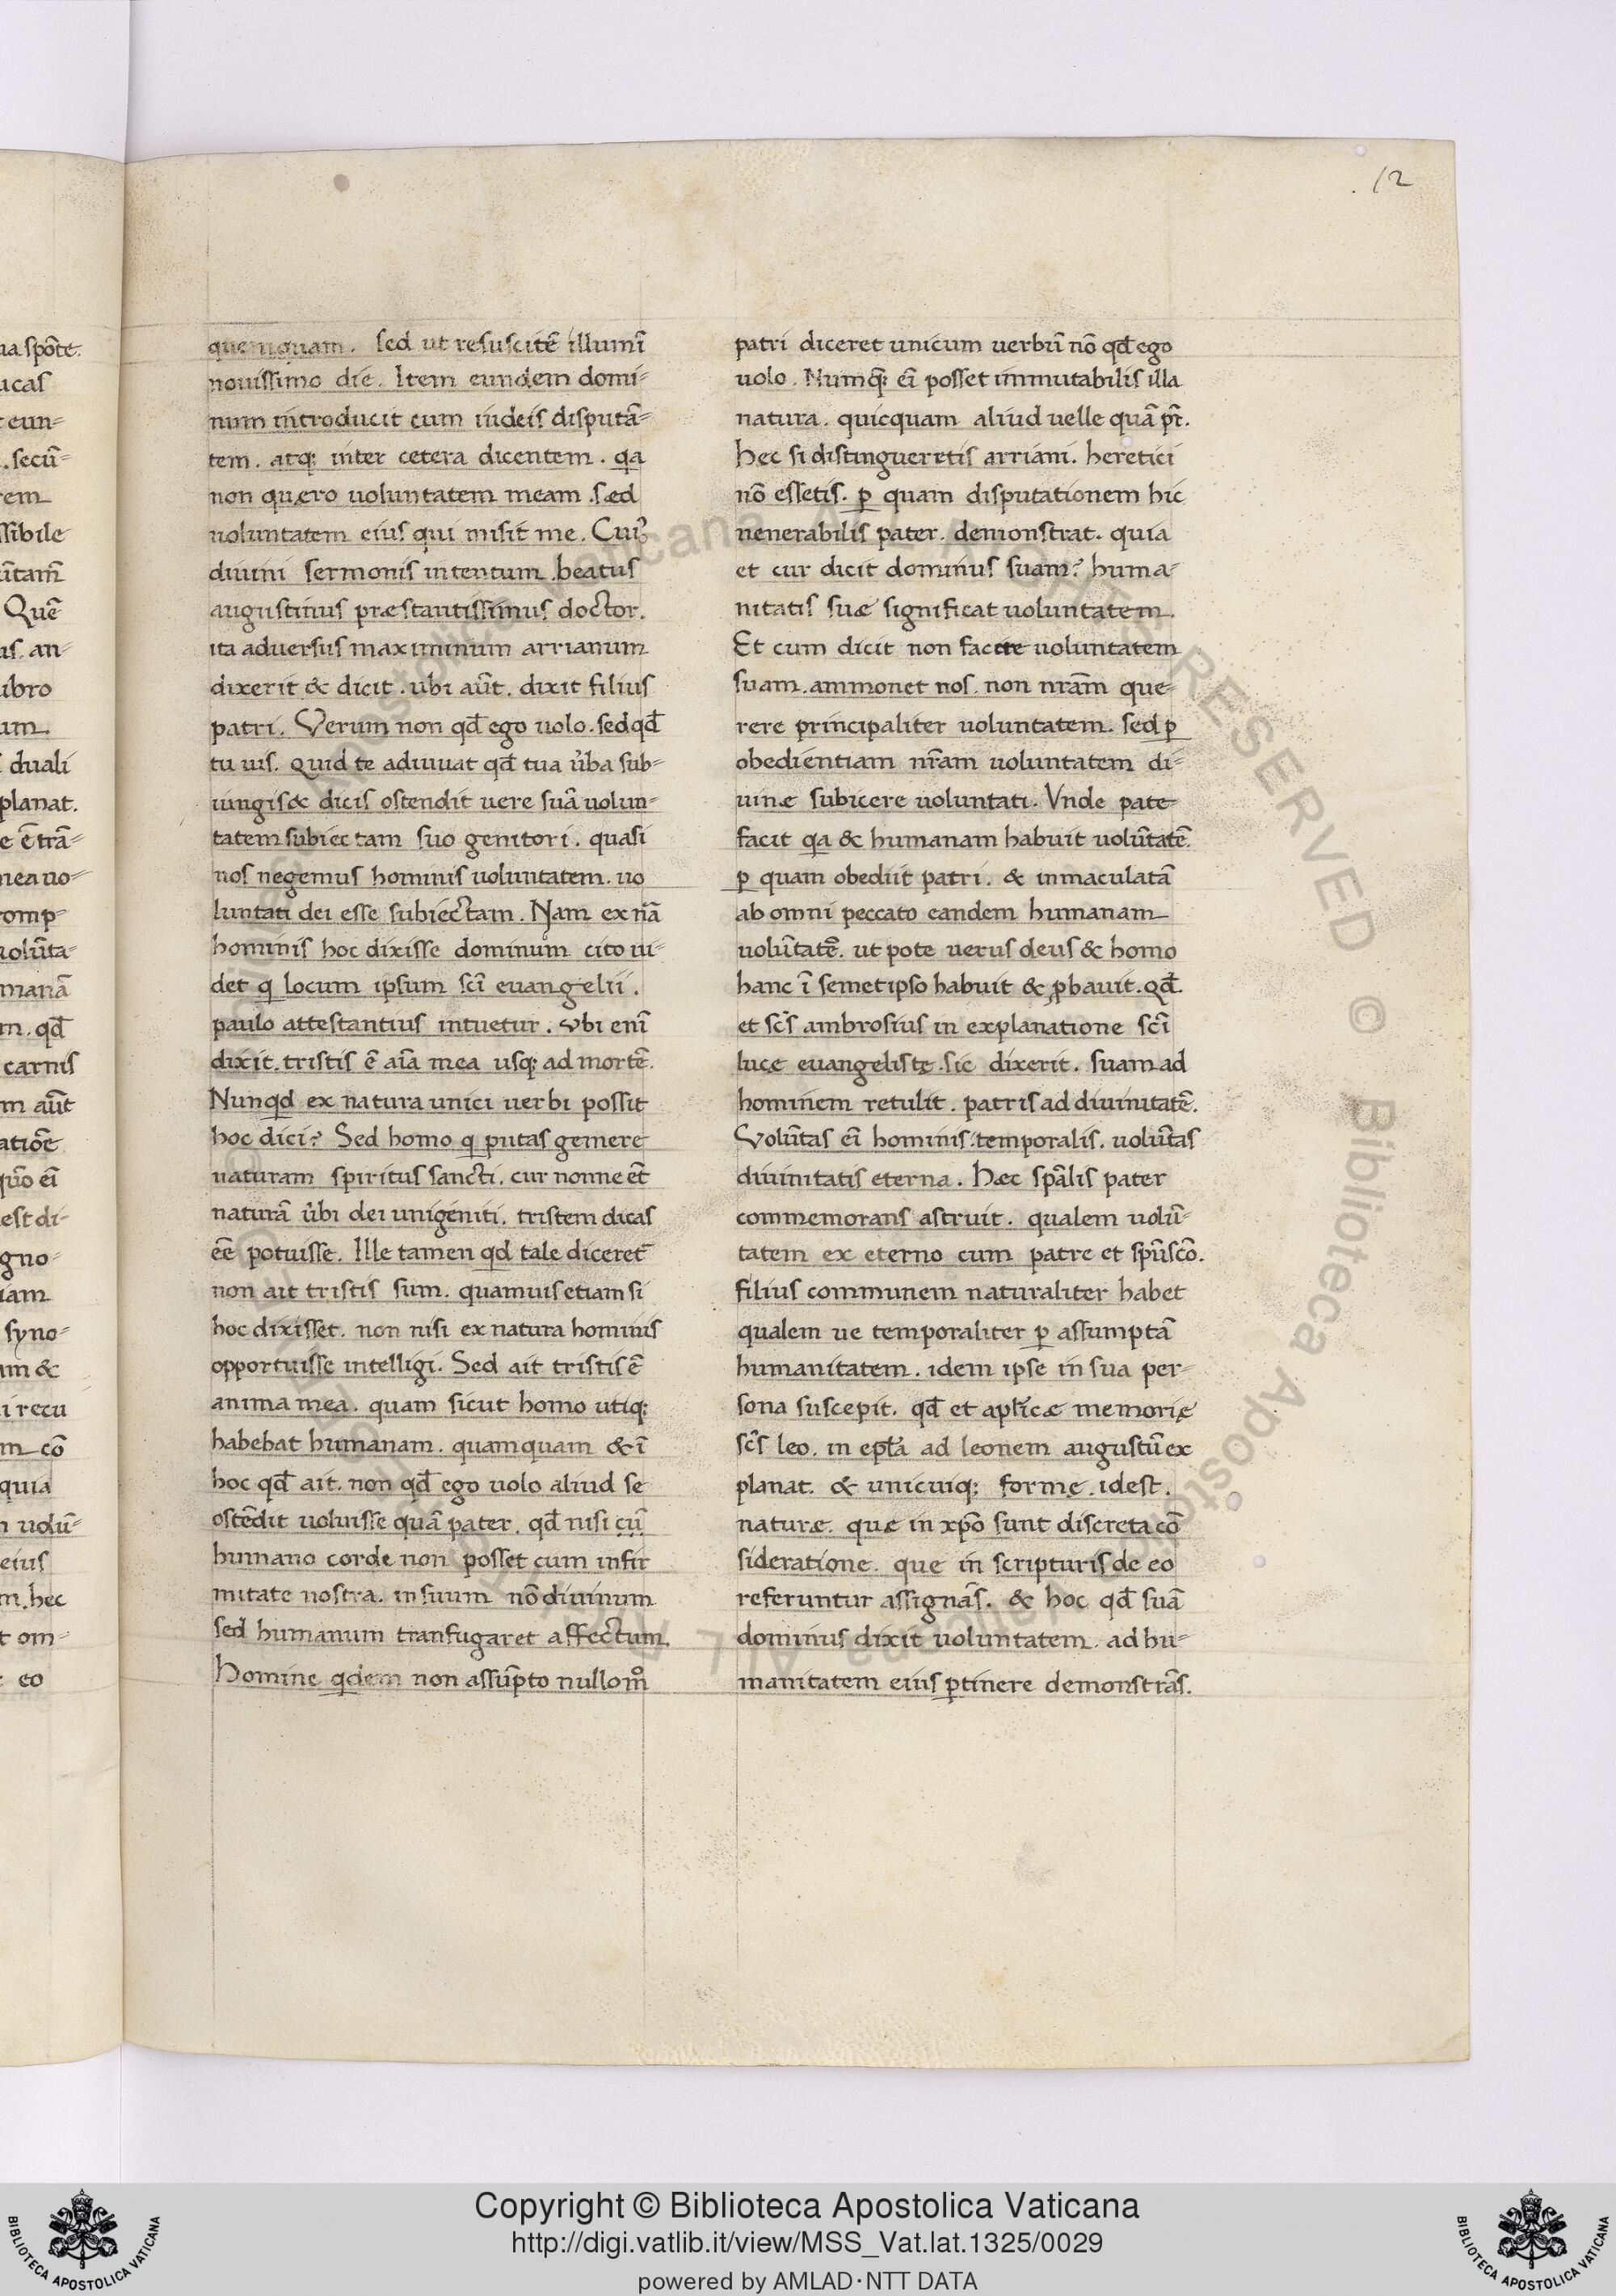 12
ua spōte.
ucas
t eun-
. secū-
rem
ssibile
ūtam̄
Quē
us. an-
ibro
um
duali
planat.
e ē trā-
mea uo-
romp-
uolūta-
manā
m. qđ
carnis
m aūt
atiōe
quō ei̅
est di-
gno-
iam
syno-
um &
i recu
m cō
quia
uolū-
eius
m. hec
t om-
eo
quemquam. sed ut resuscitē illum ī
nouissimo die. Item eundem domi-
num introducit cum iudeis disputā-
tem. atq; inter cetera dicentem. qa
non quęro uoluntatem meam. sæd
uoluntatem eius qui misit me. Cui᾽
diuini sermonis intentum. beatus
augustinus præstantissimus doctor.
ita aduersus maximinum arrianum
dixerit & dicit. ubi aūt. dixit filius
patri. Verum non qđ ego uolo. sed qđ
tu uis. quid te adiuuat qđ tua ūba sub-
iungis & dicis ostendit uere suā uolun-
tatem subiectam suo genitori. quasi
nos negemus hominis uoluntatem. uo
luntati dei esse subiectam. Nam ex nā
hominis hoc dixisse dominum cito ui-
det q locum ipsum sc̄i euangelii.
paulo attestantius intuetur. vbi eni̅
dixit. tristis ē aīa mea usq; ad mortē.
Nunqd ex natura unici uerbi possit
hoc dici? Sed homo q putas gemere
naturam spiritus sancti. cur nonne et̄
naturā ūbi dei unigeniti. tristem dicas
ēē potuisse. Ille tamen qd tale diceret̄
non ait tristis sum. quamuis etiam si
hoc dixisset. non nisi ex natura hominis
opportuisse intelligi. Sed ait tristis ē
anima mea. quam sicut homo utiq;
habebat humanam. quamquam & ī
hoc qđ ait. non qđ ego uolo aliud se
ostēdit uoluisse quā pater. qđ nisi cū
humano corde non posset cum infir
mitate nostra. in suum nō diuinum
sed humanum tranfugaret affectum.
Homine qdem non assūpto nullo m°
patri diceret unicum uerbū nō qđ ego
uolo. Numq; ei̅ posset immutabilis illa
natura. quicquam aliud uelle quā pr̄.
hec si distingueretis arriani. heretici
nō essetis. ꝑ quam disputationem hic
uenerabilis pater. demonstrat. quia
et cur dicit dominus suam? huma-
nitatis suæ significat uoluntatem.
Et cum dicit non facere uoluntatem
suam. ammonet nos. non nr̄am que-
rere principaliter uoluntatem. sed ꝑ
obedientiam nr̄am uoluntatem di-
uinæ subicere uoluntati. Vnde pate-
facit qa & humanam habuit uolūtatē.
ꝑ quam obediit patri. & inmaculatā
ab omni peccato eandem humanam
uolūtatē. ut pote uerus deus & homo
hanc ī semetipso habuit & ꝓbauit. Qđ
et sc̄s ambrosius in explanatione sc̄i
lucę euangelistę. sic dixerit. suam ad
hominem retulit. patris ad diuinitatē.
Volūtas ei̅ hominis. temporalis. uolūtas
diuinitatis eterna. Hæc spālis pater
commemorans astruit. qualem uolū-
tatem ex eterno cum patre et spū scō.
filius communem naturaliter habet
qualem ue temporaliter ꝑ assumptā
humanitatem. idem ipse in sua per-
sona suscepit. qđ et apl̄icæ memorię
sc̄s leo. in epl̄a ad leonem augustū ex
planat. & unicuiq; formę. idest.
naturæ. quæ in xp̄o sunt discreta cō
sideratione. que in scripturis de eo
referuntur assignās. & hoc qđ suā
dominus dixit uoluntatem. ad hu-
manitatem eius ꝑtinere demonstrās.
Copyright © Biblioteca Apostolica Vaticana
http://digi.vatlib.it/view/MSS_Vat.lat.1325/0029
powered by AMLAD·NTT DATA
BIBLIOTECA APOSTOLICA VATICANA
BIBLIOTECA APOSTOLICA VATICANA